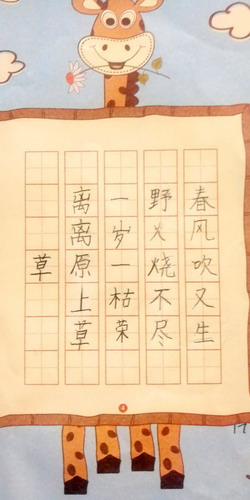 草
离离原上草
一岁一枯荣
野火烧不尽
春风吹又生
4